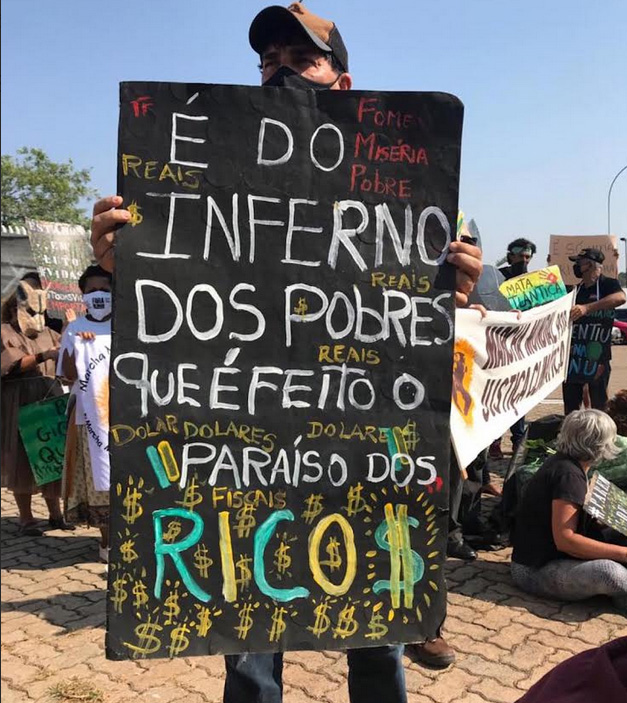 TF
É DO
FOME
MISÉRIA
POBRE
REAIS
$
INFERNO
REAIS
DOS POBRES
$
REAIS
QUE É FEITO O
DOLAR DOLARES DOLARES $
PARAÍSO DOS
$ FISCAIS $ $
RICO$
$ $ $ $ $ $ $
MATA
ATLÂNTICA
MARCHA MUNDIAL POR
JUSTIÇA CLIMÁTICA
Marcha